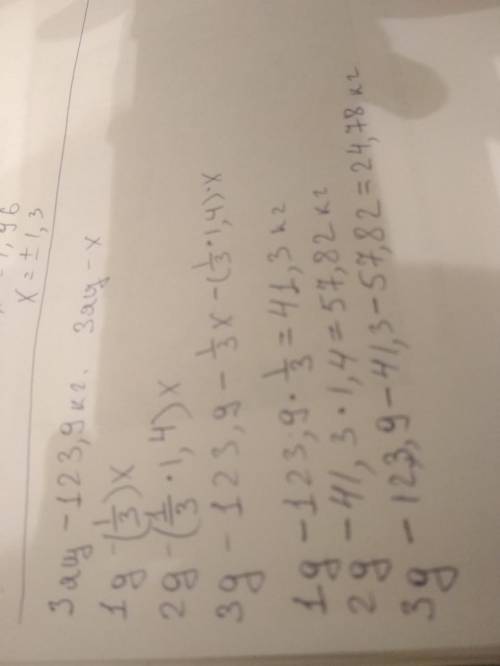 x = ± 1,3
3ащ - 123,9 кг. 3ащ - x
1g - (1/3)x
2g - (1/3 · 1,4)x
3g - 123,9 - 1/3x - (1/3 · 1,4) · x
1g - 123,9 · 1/3 = 41,3 кг
2g - 41,3 · 1,4 = 57,82 кг
3g - 123,9 - 41,3 - 57,82 = 24,78 кг